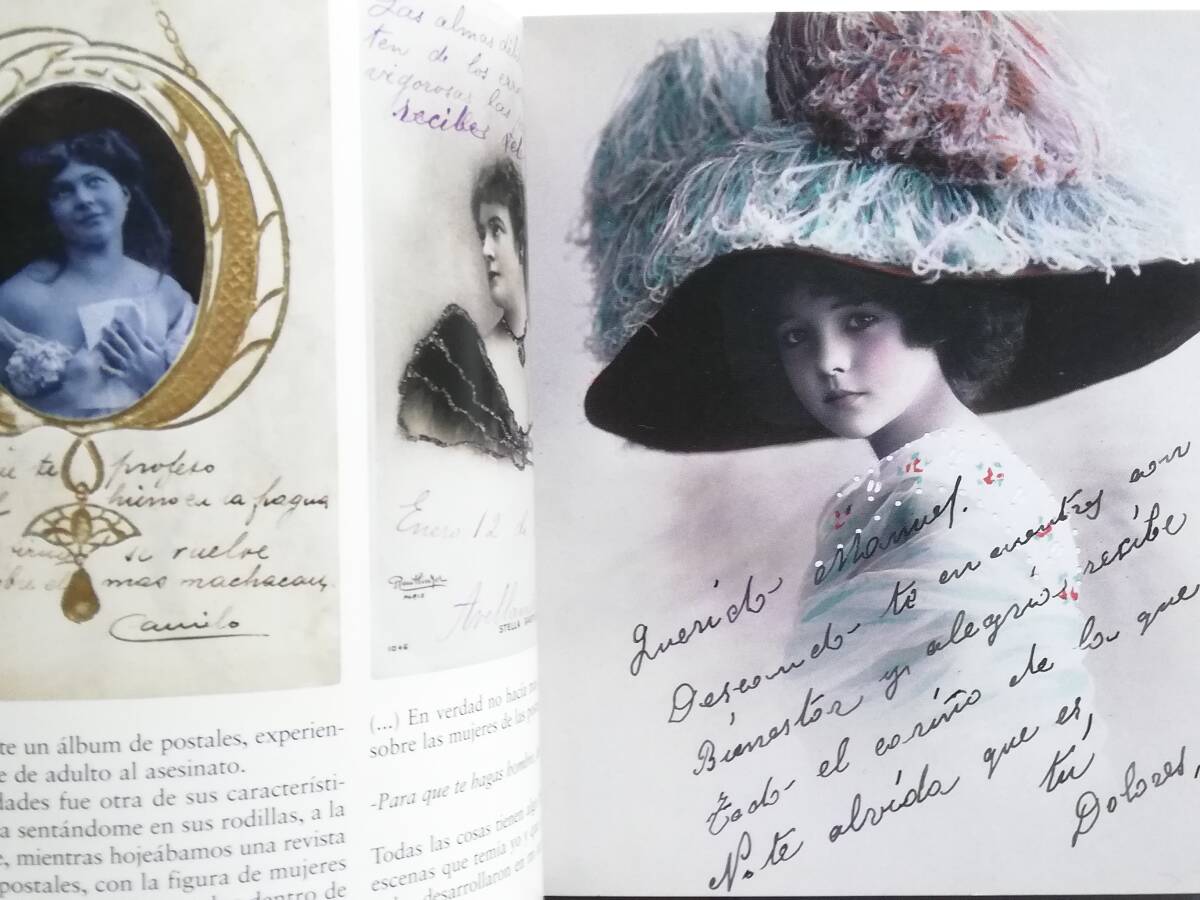 te profeso
hierro en la fragua
se vuelve
mas machacan.
Camilo
te un álbum de postales, experien-
e de adulto al asesinato.
dades fue otra de sus característi-
a sentándome en sus rodillas, a la
e, mientras hojeábamos una revista
postales, con la figura de mujeres
dentro de
Las almas
ten de los
vigorosas las
recibes
Enero 12 de
Reutlinger
PARIS
1046
STELLA
(...) En verdad no hacía
sobre las mujeres de las
-Para que te hagas hombre,
Todas las cosas tienen
escenas que temía yo y
desarrollaron en
Querido Manuel.
Deseando te encuentres con
Bienestar y alegrías recibe
Todo el cariño de la que
No te olvida que es,
tu
Dolores,